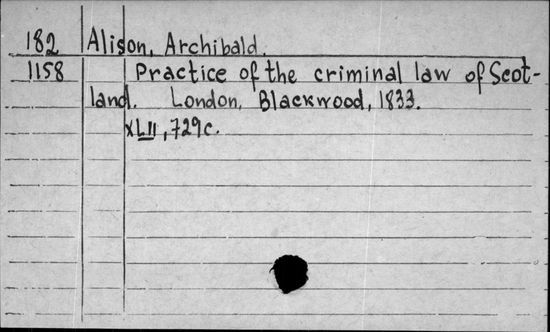 182 Alison, Archibald.
1158 Practice of the criminal law of Scot-
land. London, Blackwood, 1833.
XLII, 729c.